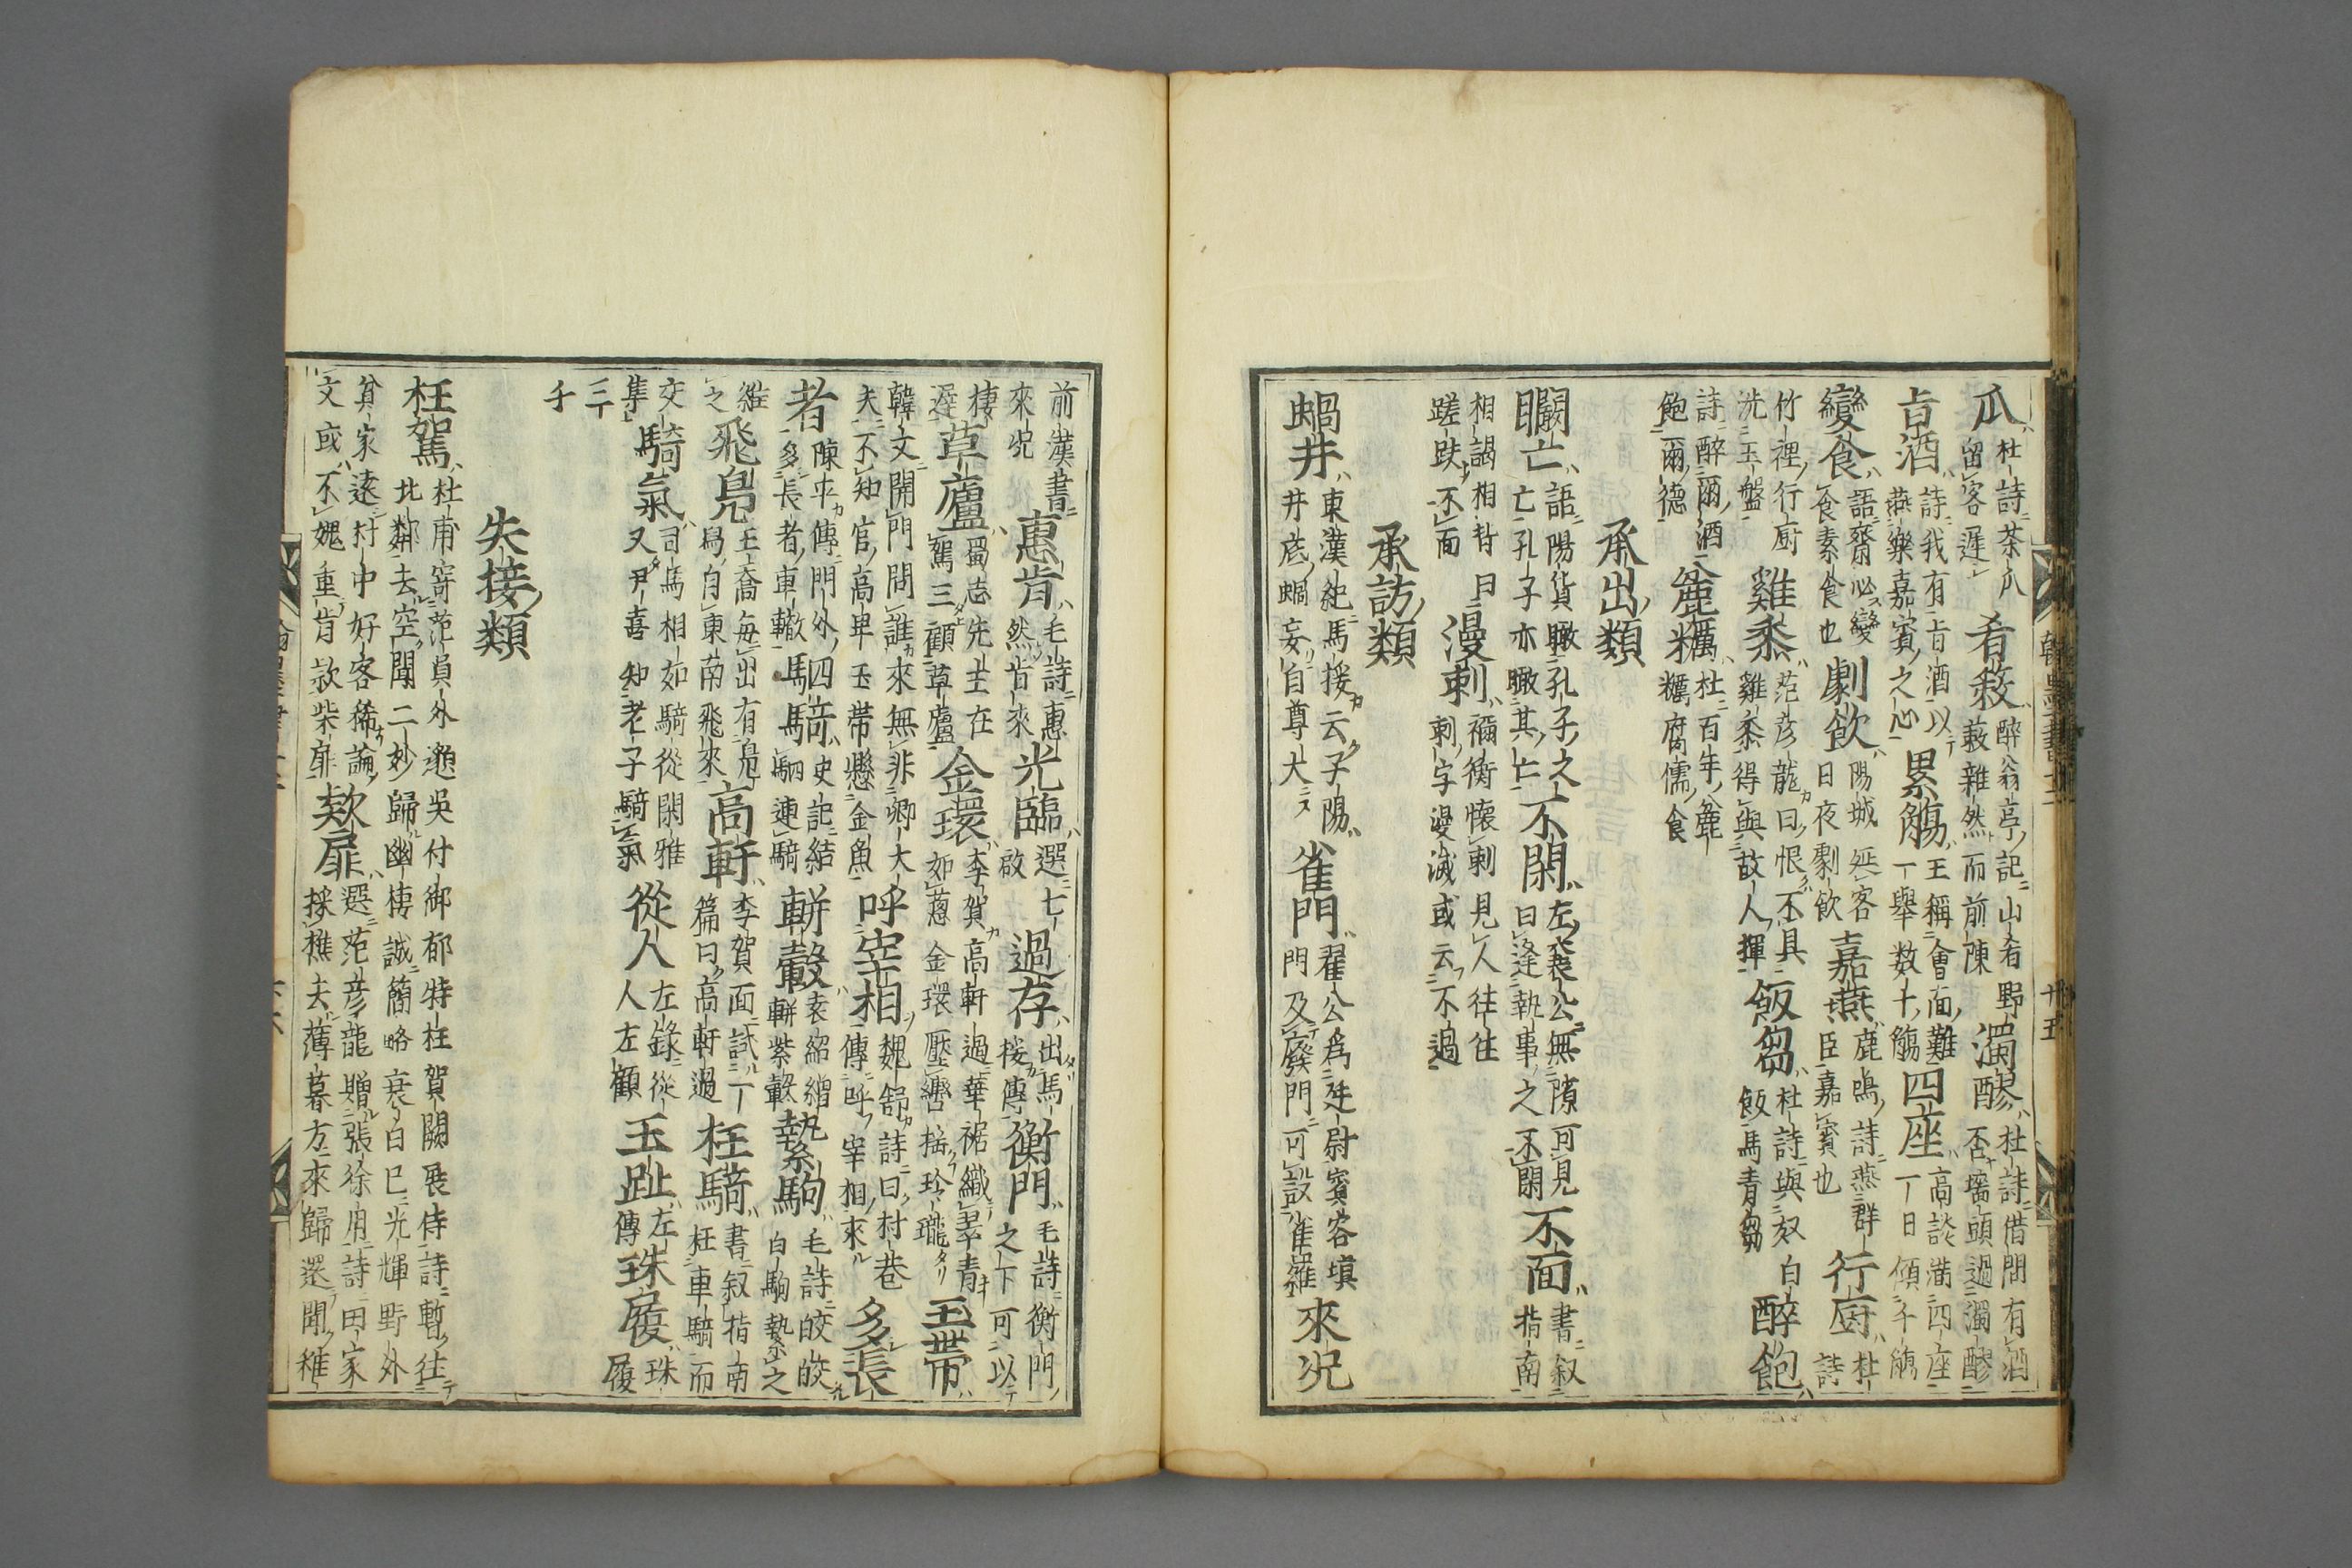 瓜 杜詩茶瓜留客遲 肴蔌 醉翁亭記山肴野蔌雜然而前陳 濁醪 杜詩借問有酒否墻頭過濁醪
旨酒 詩我有旨酒以燕樂嘉賓之心 累觴 王稱會面難一擧数十觴 四座 高談満四座一日傾千觴
變食 語齋必變食素食也 劇飲 陽城延客日夜劇飲 嘉燕 鹿鳴詩燕群臣嘉賓也 行厨 杜詩
竹裡行厨洗玉盤 雞黍 范彦龍曰恨不具雞黍得與故人揮 飯芻 杜詩與奴白飯馬青芻 醉飽
詩醉爾酒飽爾德 麁糲 杜百年麁糲腐儒食
承出類
瞷亡 語陽貨瞰孔子之亡孔子亦瞰其亡 不閑 左襄公無隙可見曰逢執事之不閑 不面 書叙指南
相謁相背曰蹉跌不面 漫刺 禰衡懐刺見人往往刺字漫滅或云不過
承訪類
蝸井 東漢紀馬援云子陽井底蝸妄自尊大 雀門 翟公為廷尉賓客填門及廢門可設雀羅 來况
前漢書來况 惠肯 毛詩惠然肯來 光臨 選七啟 過存 出馬援傳 衡門 毛詩衡門之下可以
棲遲 草廬 蜀志先主在駕三顧草廬 金環 李賀高軒過華裾織翠青如葱金環壓轡揺玲瓏 玉帶
韓文開門問誰來無非卿大夫不知官高卑玉帯懸金魚 呼宰相 魏舒傳詩曰村巷呼宰相來 多長
者 陳平傳門外多長者車轍 駟騎 史記結駟連騎 軿轂 袁紹繒軿紫轂 縶駒 毛詩皎皎白駒縶之
維之 飛鳧 王喬毎出有鳧舄自東南飛來 高軒 李賀面試一篇曰高軒過 枉騎 書叙指南枉車騎而
交集 騎氣 司馬相如騎從閑雅又尹喜知老子騎氣 從人 左錄從人左顧 玉趾 左傳 珠履 珠履
三千
失接類
枉駕 杜甫寄范員外邈吳付御郁特枉賀闕展侍詩暫往北鄰去空聞二妙歸幽棲誠簡略衰白已光輝野外
貧家遠村中好客稀論文或不媿重肯款柴扉 欵扉 選范彦龍贈張徐州詩田家採樵去薄暮方來歸還聞稚